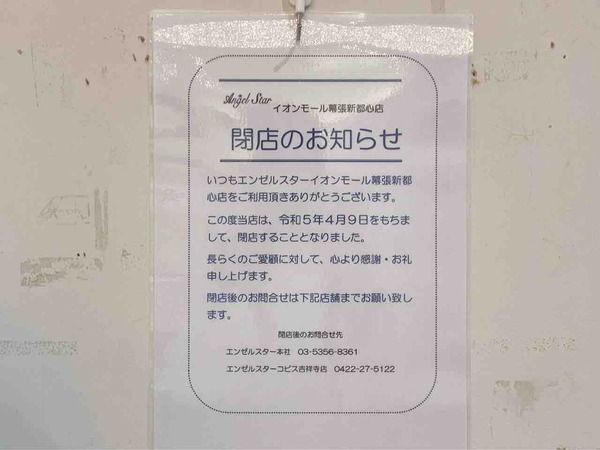 Angel Star イオンモール幕張新都心店
閉店のお知らせ
いつもエンゼルスターイオンモール幕張新都
心店をご利用頂きありがとうございます。
この度当店は、令和5年4月9日をもちま
して、閉店することとなりました。
長らくのご愛顧に対して、心より感謝・お礼
申し上げます。
閉店後のお問合せは下記店舗までお願い致し
ます。
閉店後のお問合せ先
エンゼルスター本社 03-5356-8361
エンゼルスターコピス吉祥寺店 0422-27-5122